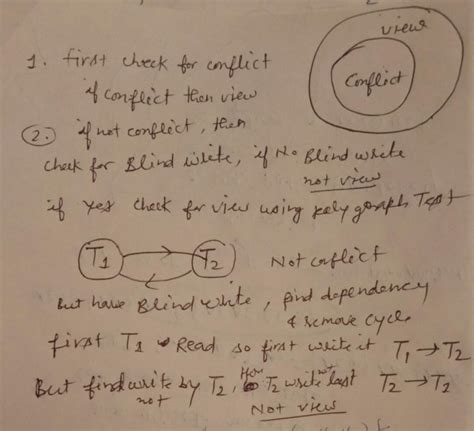 1. first check for conflict
if conflict then view
view
Conflict
2. if not conflict, then
check for Blind write, if No Blind write
not view
if yes check for view using polygraph Test
T1 T2 Not conflict
But have Blind write, find dependency
& remove cycle
first T1 Read so first write it T1 → T2
But find write by T2, T2 write last T2 → T2
not
Not view